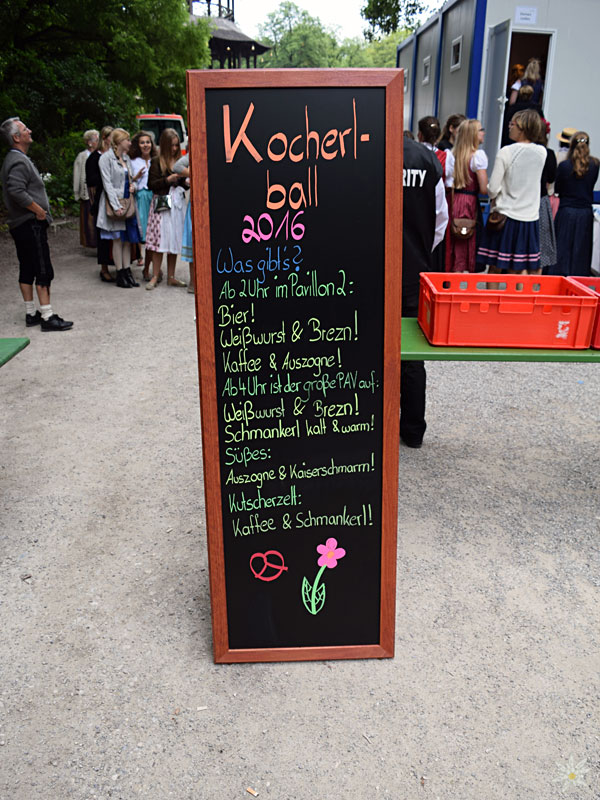 Kocherl-
ball
2016
Was gibt's?
Ab 2 Uhr im Pavillon 2:
Bier!
Weißwurst & Brezn!
Kaffee & Auszogne!
Ab 4 Uhr ist der große PAV auf:
Weißwurst & Brezn!
Schmankerl kalt & warm!
Süßes:
Auszogne & Kaiserschmarrn!
Kutscherzelt:
Kaffee & Schmankerl!
RITY